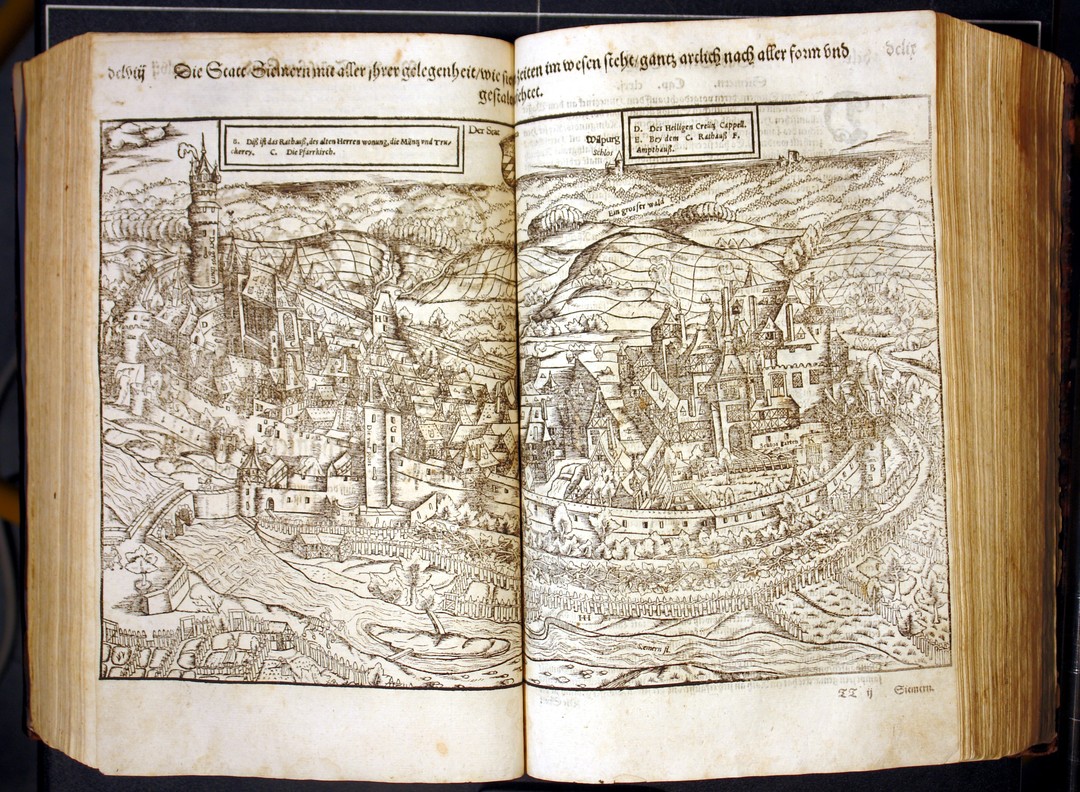 Die Statt Siemern mit aller jhrer gelegenheit/wie sie zeiten im wesen steht/gantz artlich nach aller form vnd
B. Diß ist das Rathauß, des alten Herren wonung, die Müntz vnd Tru-
ckerey. C. Die Pfarrkirch.
Der Stat
Wilpurg
Schlos
D. Des Heiligen Creütz Cappell.
E. Bey dem C. Rathauß F.
Ampthauß.
Ein grosser wald
Siemern fl.
TT ij Siemern.